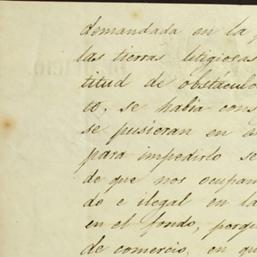 demandada en la p
las tierras litigiosas
titud de obstáculo
co, se habia cons
se pusieran en
para impedirlo se
de que nos ocupam
do e ilegal en la
en el fondo, porqu
de comercio, en qu